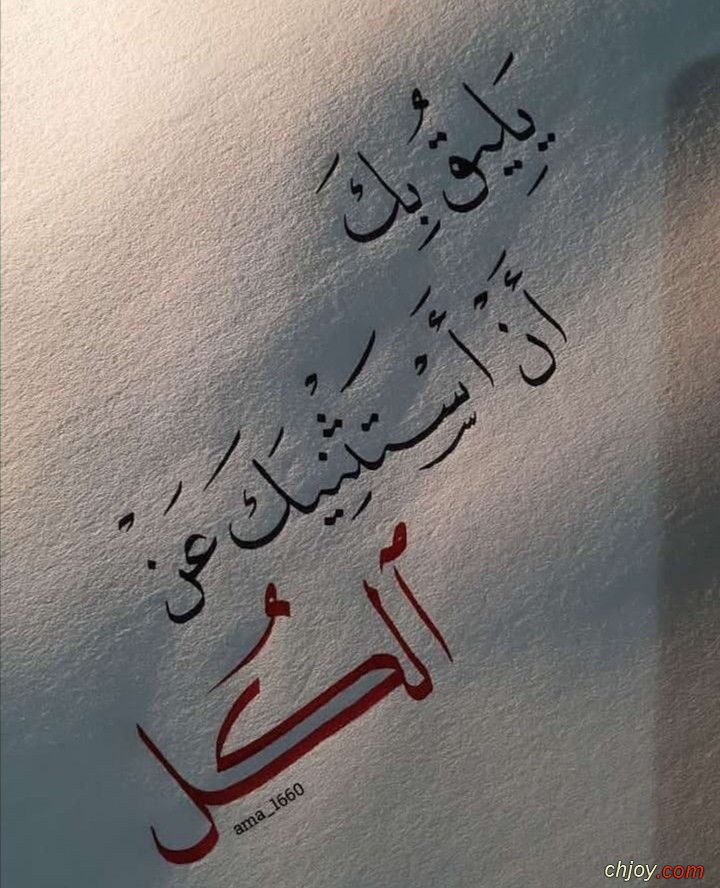 يَليقُ بِكَ
أَنْ أَسْتَثْنِيكَ عَنْ
الكُل
ama_1660
chjoy.com